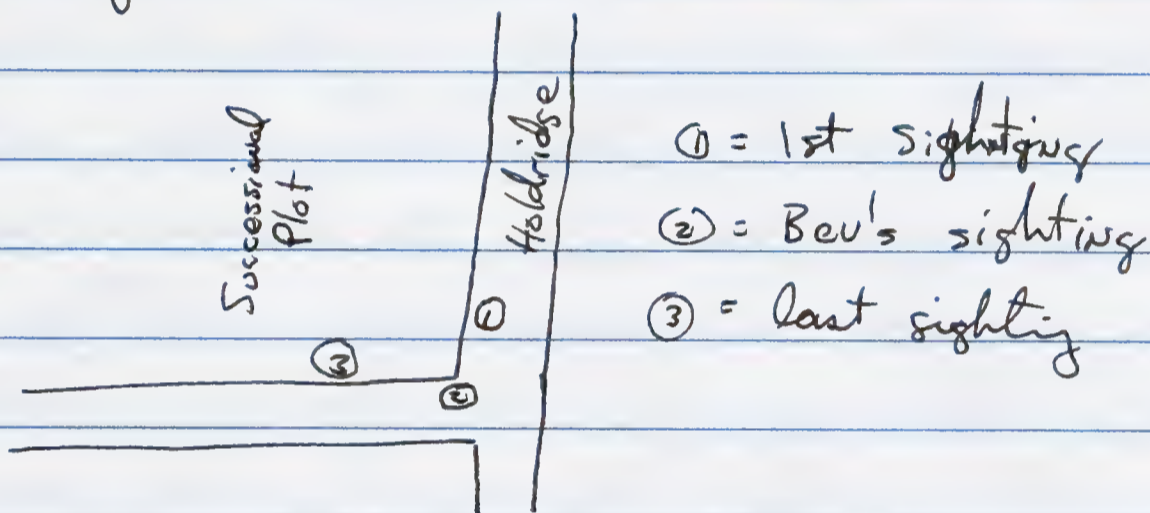 Successional
Plot
Holdridge
① = 1st sightging
② = Bev's sighting
③ = last sightig
①
③
②